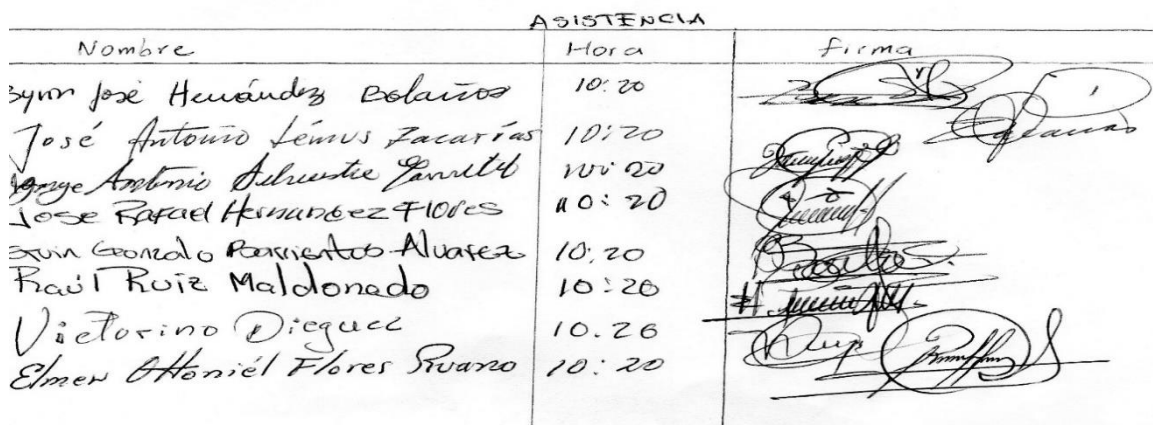 ASISTENCIA
Nombre Hora firma
José Hernández Bolaños 10:20
José Antonio Lémus Zacarías 10:20
Antonio 10:20
Jose Rafael Hernandez Flores 10:20
Gonzalo Barrientos Alvarez 10:20
Raúl Ruiz Maldonado 10:20
Victorino Dieguez 10.20
Elmer Ottoniél Flores Ruano 10:20